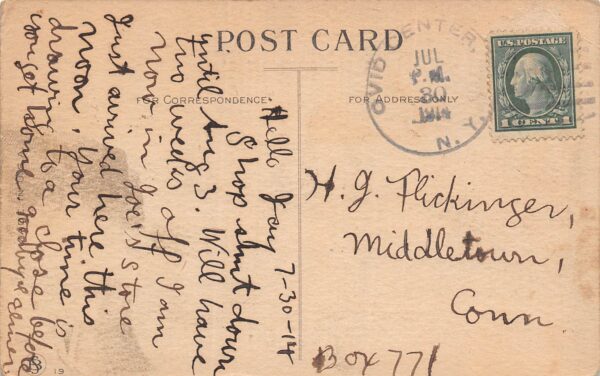 POST CARD
FOR CORRESPONDENCE
FOR ADDRESS ONLY
OVID CENTER,
N. Y.
JUL
P.M.
30
1914
U.S. POSTAGE
1 CENT 1
Hello Jay 7-30-14
Shop shut down
until Aug 3. Will have
two weeks off I am
now in Joe's store
Just arrived here this
noon, is your time is
drawing to a close before
you get some. goodbye
H. J. Flickinger,
Middletown,
Conn.
Box 771
19